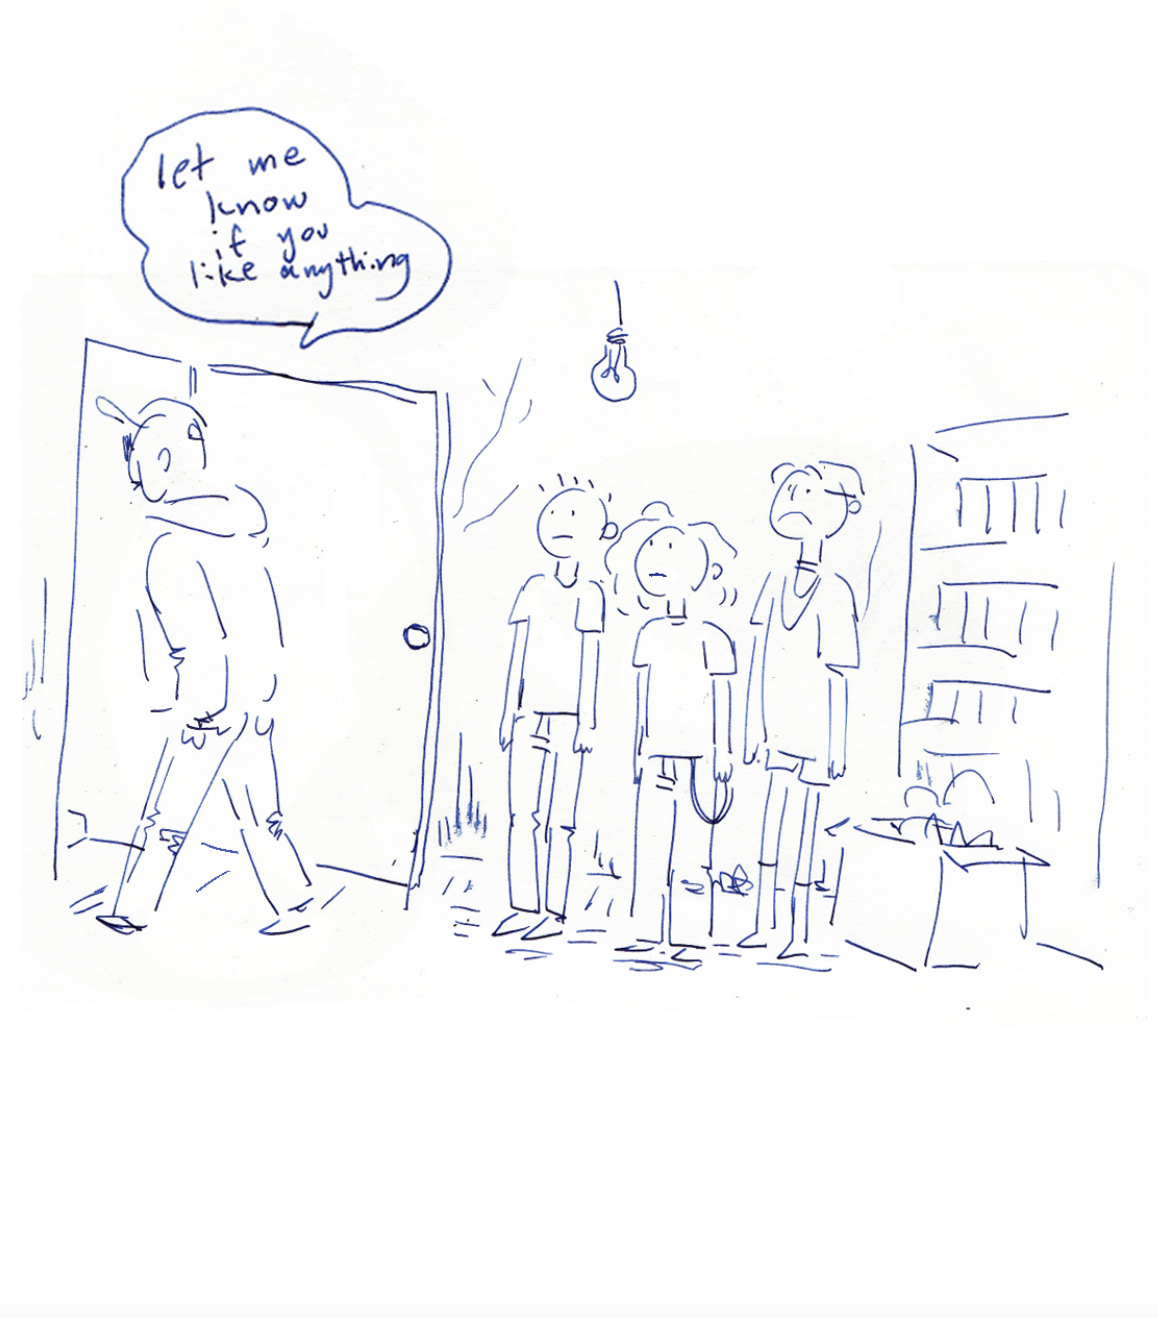 let me
know
if you
like anything